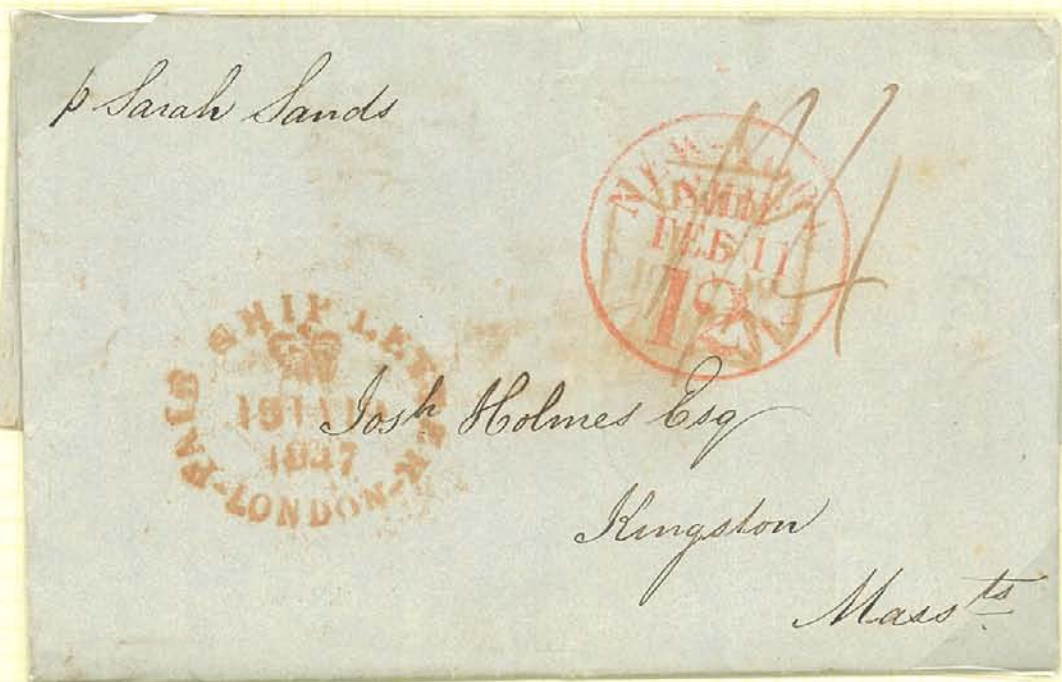 p Sarah Sands
NEW-YORK
SHIP
FEB 11
12
4
PAID SHIP LETTER
1847
-LONDON-
Josh Holmes Esq
Kingston
Massts